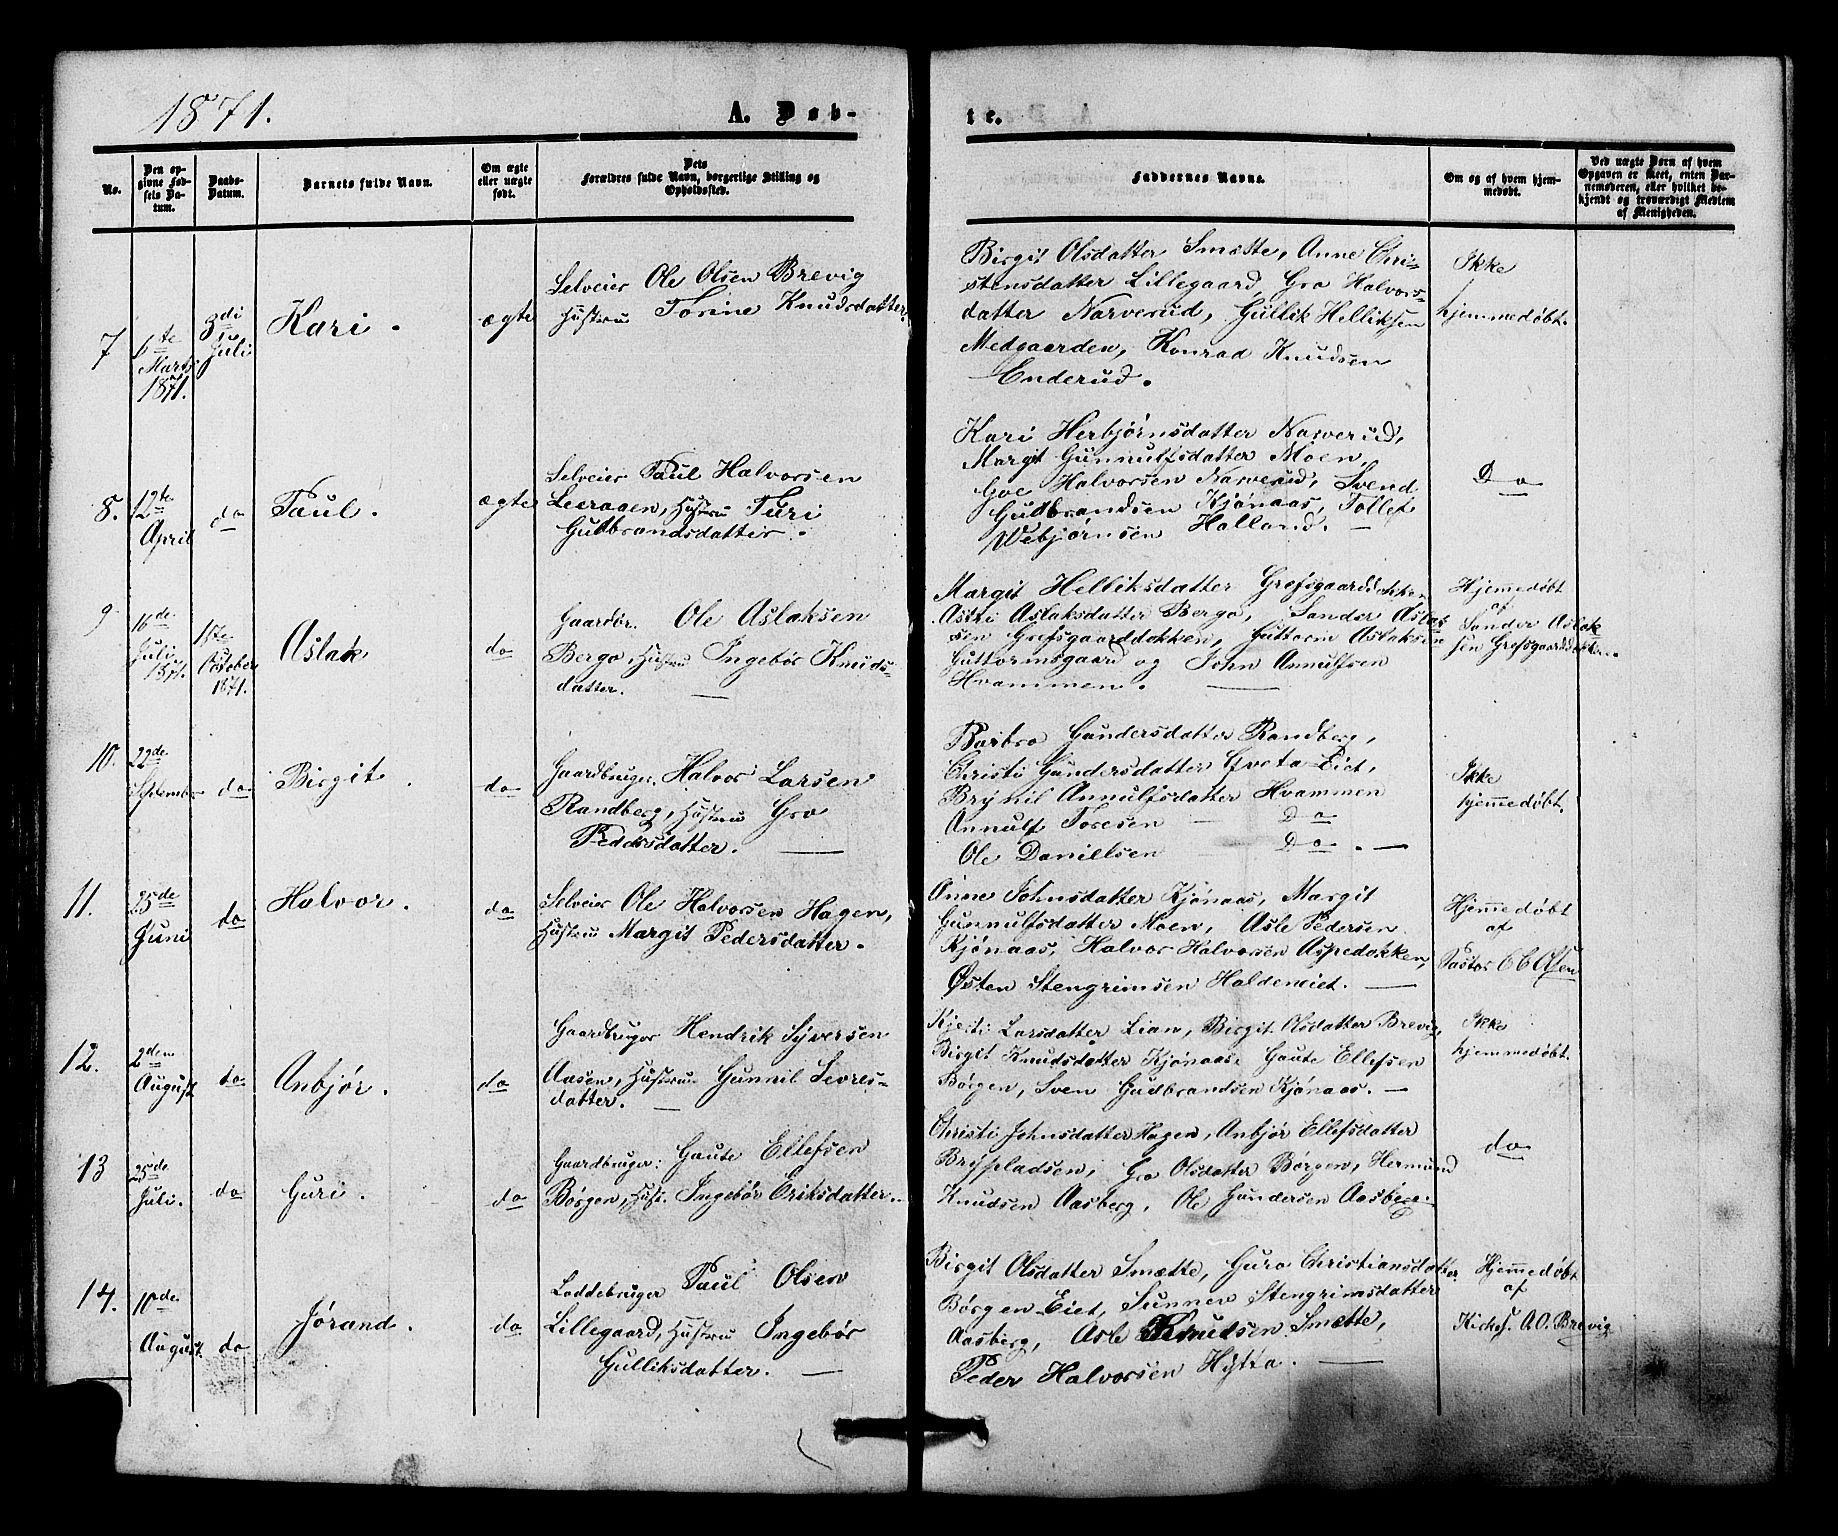 1871.
A. Døb-
te.
No.
Den op-
givne Fød-
sels Da-
tum.
Daabs-
Datum.
Barnets fulde Navn.
Om ægte
eller uægte
født.
Dets
Forældres fulde Navn, borgerlige Stilling og
Opholdssted.
Faddernes Navne.
Om og af hvem hjem-
medøbt.
Ved uægte Børn af hvem
Opgaven er skeet, enten Bar-
nemoderen, eller hvilket be-
kjendt og troværdigt Medlem
af Menigheden.
7
6te
Marts
1871.
3di
Juli
Kari.
ægte
Selveier Ole Olsen Brevig
Hustru Torine Knudsdatter.
Birgit Olsdatter Smætte, Anne Chri-
stensdatter Lillegaard, Gro Halvors-
datter Narverud, Gullik Helliksen
Medgaarden, Konrad Knudsen
Enderud.
Ikke
hjemmedøbt.
8.
12te
April
do
Paul.
ægte
Selveier Paul Halvorsen
Leeraaen, Hustru Turi
Gudbrandsdatter.
Kari Herbjørnsdatter Narverud,
Margit Gunnulfsdatter Moen,
Goe Halvorsen Narverud, Svend
Gudbrandsen Kjønaas, Tollef
Webjørnsen Holland.
Do
9
16de
Juli
1871.
15te
October
1871.
Aslak
do
Gaardbr. Ole Aslaksen
Bergo, Hustru Ingebør Knuds-
datter.
Margit Helliksdatter Grofsgaarddokken
Astri Aslaksdatter Bergo, Sander Aslak
sen Grofsgaarddokken, Guttorm Aslaksen
Guttormsgaard og John Annulfsen
Hvammen.
Hjemmedøbt
af
Sander Aslak
sen Grofsgaarddokken.
10.
22de
September
do
Birgit
do
Gaardbruger Halvor Larsen
Randberg, Hustru Gro
Pedersdatter.
Barbro Gundersdatter Randberg,
Christi Gundersdatter Eiet,
Brynil Annulfsdatter Hvammen
Annulf Toresen Do
Ole Danielsen Do.
Ikke
hjemmedøbt.
11.
25de
Juni
do
Halvor.
do
Selveier Ole Halvorsen Hagen,
Hustru Margit Pedersdatter.
Anne Johnsdatter Kjønaas, Margit
Gunnulfsdatter Moen, Asle Pedersen
Kjønaas, Halvor Halvorsen Aspedokken,
Østen Stengrimsen Haldeneiet.
Hjemmedøbt
af
Pastor
12.
2den
August
do
Anbjør.
do
Gaardbruger Hendrik Syversen
Aasen, Hustru Gunnil Sevres-
datter.
Kjersti Larsdatter Lian, Birgit Olsdatter Brevig,
Birgit Knudsdatter Kjønaas, Gaute Ellefsen
Børgen, Sven Gudbrandsen Kjønaas.
Ikke
hjemmedøbt.
13
25de
Juli.
do
Guri.
do
Gaardbruger: Gaute Ellefsen
Børgen, Hust. Ingebør Eriksdatter.
Christi Johnsdatter Hagen, Anbjør Ellefsdatter
Brypladsen, Gro Olsdatter Børgen, Hermund
Knudsen Aasberg, Ole Gundersen Aasberg.
do
14.
10de
August
do
Jørand.
do
Loddebruger Paul Olsen
Lillegaard, Hustru Ingebør
Gulliksdatter.
Birgit Olsdatter Smætte, Guro Christiansdatter
Børgen Eiet, Sunnev Stengrimsdatter
Aasberg, Asle Knudsen Smætte,
Peder Halvorsen Hytta.
Hjemmedøbt
af
Kirkes. A.O. Brevig